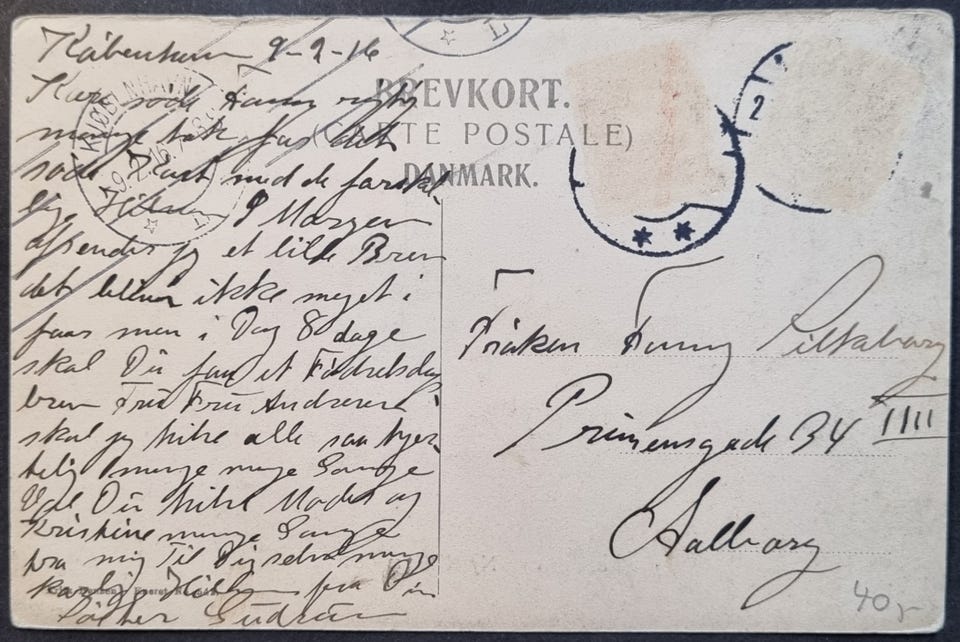 København 9-2-16
Kære søde Fanny rigtig
mange tak for det
søde Kort med de
Hilsen I Morgen
afsender jeg et lille Brev
det bliver ikke meget i
faar men i Dag 8 dage
skal Du faa et Fødselsdags
brev Fra Fru Andersen
skal jeg hilse alle saa hjer-
telig mange mange Gange
Vil Du hilse Moder og
Kristine mange Gange
fra mig Til Dig selv mange
Hilsner fra Din
Søster Gudrun
BREVKORT.
(CARTE POSTALE)
DANMARK.
KJØBENHAVN
9.2.16
L
2
Frøken Fanny Silkeborg
Prinsensgade 34 IIII
Aalborg
40,-